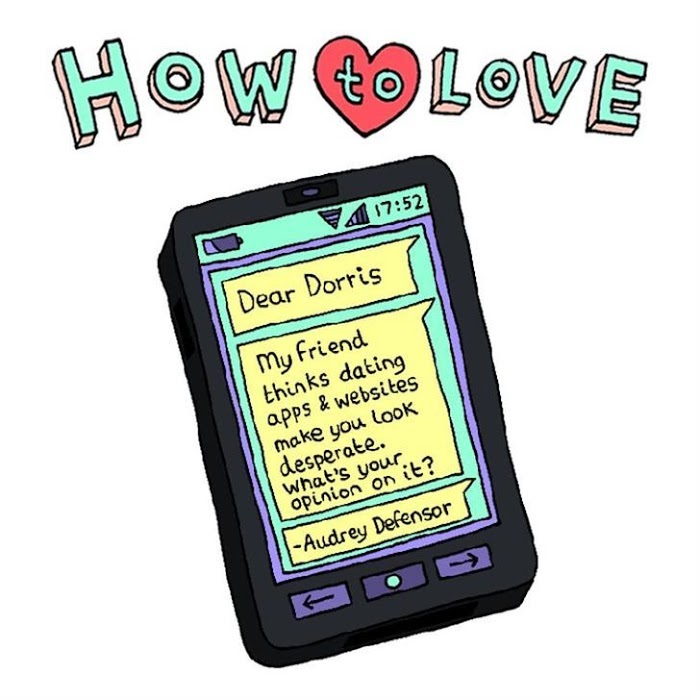 HOW to LOVE
17:52
Dear Dorris
My friend
thinks dating
apps & websites
make you look
desperate.
what's your
opinion on it?
-Audrey Defensor